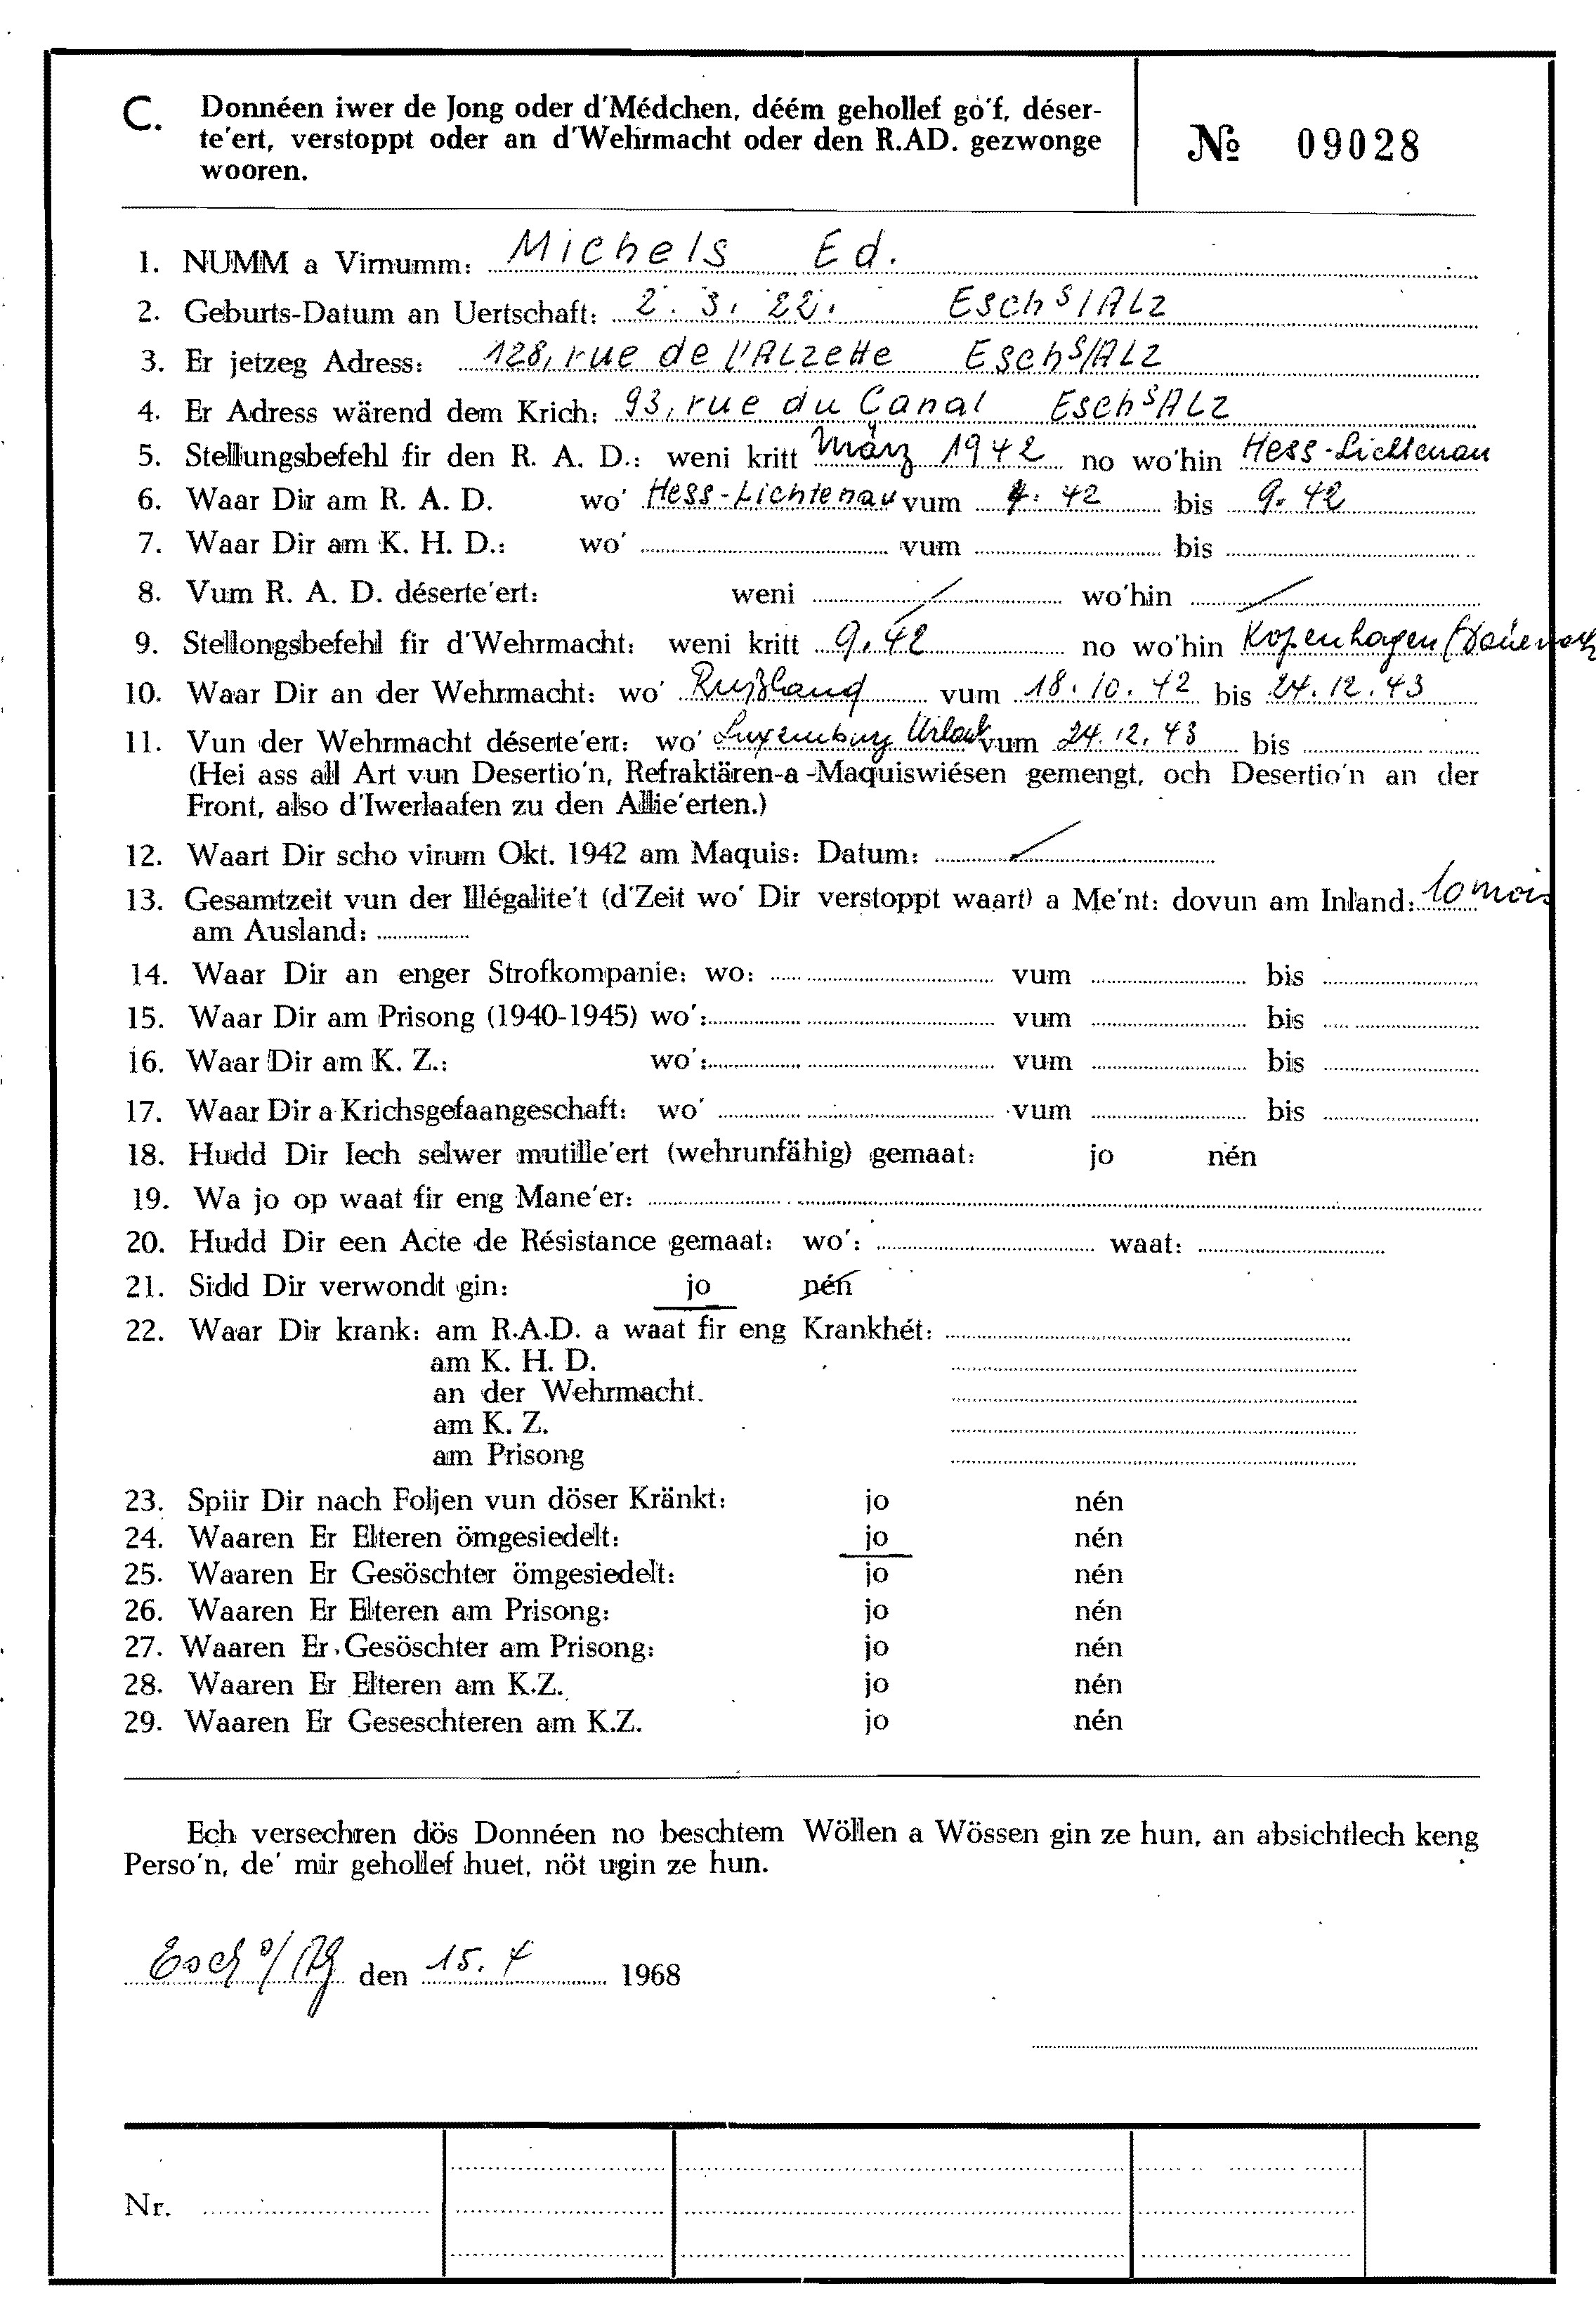 C. Donnéen iwer de Jong oder d'Médchen, déém gehollef go'f, déser-
te'ert, verstoppt oder an d'Wehrmacht oder den R.AD. gezwonge
wooren.
№ 09028
1. NUMM a Virnumm: Michels Ed.
2. Geburts-Datum an Uertschaft: 2. 3. 22. Esch s/Alz
3. Er jetzeg Adress: 128, rue de l'Alzette Esch s/Alz
4. Er Adress wärend dem Krich: 93, rue du Canal Esch s Alz
5. Stellungsbefehl fir den R. A. D.: weni kritt März 1942 no wo'hin Hess-Lichtenau
6. Waar Dir am R. A. D. wo' Hess-Lichtenau vum 4. 42 bis 9. 42
7. Waar Dir am K. H. D.: wo' vum bis
8. Vum R. A. D. déserte'ert: weni / wo'hin /
9. Stellongsbefehl fir d'Wehrmacht: weni kritt 9. 42 no wo'hin Kopenhagen
10. Waar Dir an der Wehrmacht: wo' Rußland vum 18. 10. 42 bis 24. 12. 43
11. Vun der Wehrmacht déserte'ert: wo' Luxemburg Urlaub vum 24. 12. 43 bis
(Hei ass all Art vun Desertio'n, Refraktären-a-Maquiswiésen gemengt, och Desertio'n an der
Front, also d'Iwerlaafen zu den Allie'erten.)
12. Waart Dir scho virum Okt. 1942 am Maquis: Datum: /
13. Gesamtzeit vun der Illégalite't (d'Zeit wo' Dir verstoppt waart) a Me'nt: dovun am Inland: 10 mois
am Ausland:
14. Waar Dir an enger Strofkompanie: wo: vum bis
15. Waar Dir am Prisong (1940-1945) wo': vum bis
16. Waar Dir am K. Z.: wo': vum bis
17. Waar Dir a Krichsgefaangeschaft: wo' vum bis
18. Hudd Dir Iech selwer mutille'ert (wehrunfähig) gemaat: jo nén
19. Wa jo op waat fir eng Mane'er:
20. Hudd Dir een Acte de Résistance gemaat: wo': waat:
21. Sidd Dir verwondt gin: jo nén
22. Waar Dir krank: am R.A.D. a waat fir eng Krankhét:
am K. H. D.
an der Wehrmacht.
am K. Z.
am Prisong
23. Spiir Dir nach Foljen vun döser Kränkt: jo nén
24. Waaren Er Elteren ömgesiedelt: jo nén
25. Waaren Er Gesöschter ömgesiedelt: jo nén
26. Waaren Er Elteren am Prisong: jo nén
27. Waaren Er Gesöschter am Prisong: jo nén
28. Waaren Er Elteren am K.Z. jo nén
29. Waaren Er Geseschteren am K.Z. jo nén
Ech versechren dös Donnéen no beschtem Wöllen a Wössen gin ze hun, an absichtlech keng
Perso'n, de' mir gehollef huet, nöt ugin ze hun.
Esch s/Alz den 15. 4 1968
Nr.